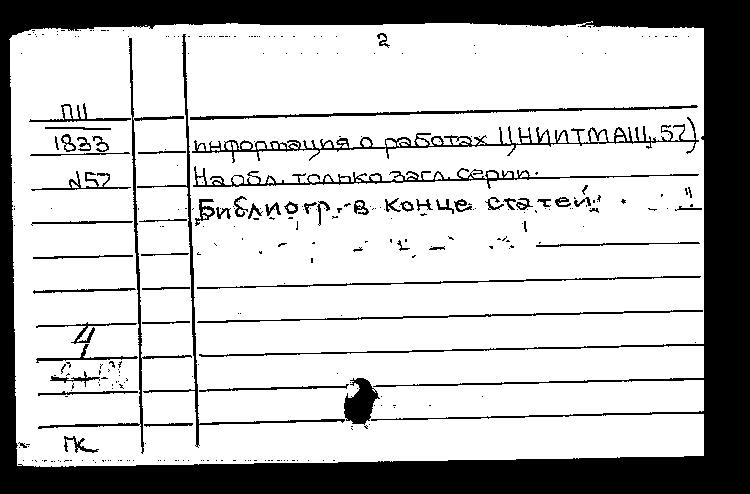 2
П11
1833
№57
информация о работах ЦНИИТМАШ, 57).
На обл. только загл. серии.
Библиогр. в конце статей.
4
ПК